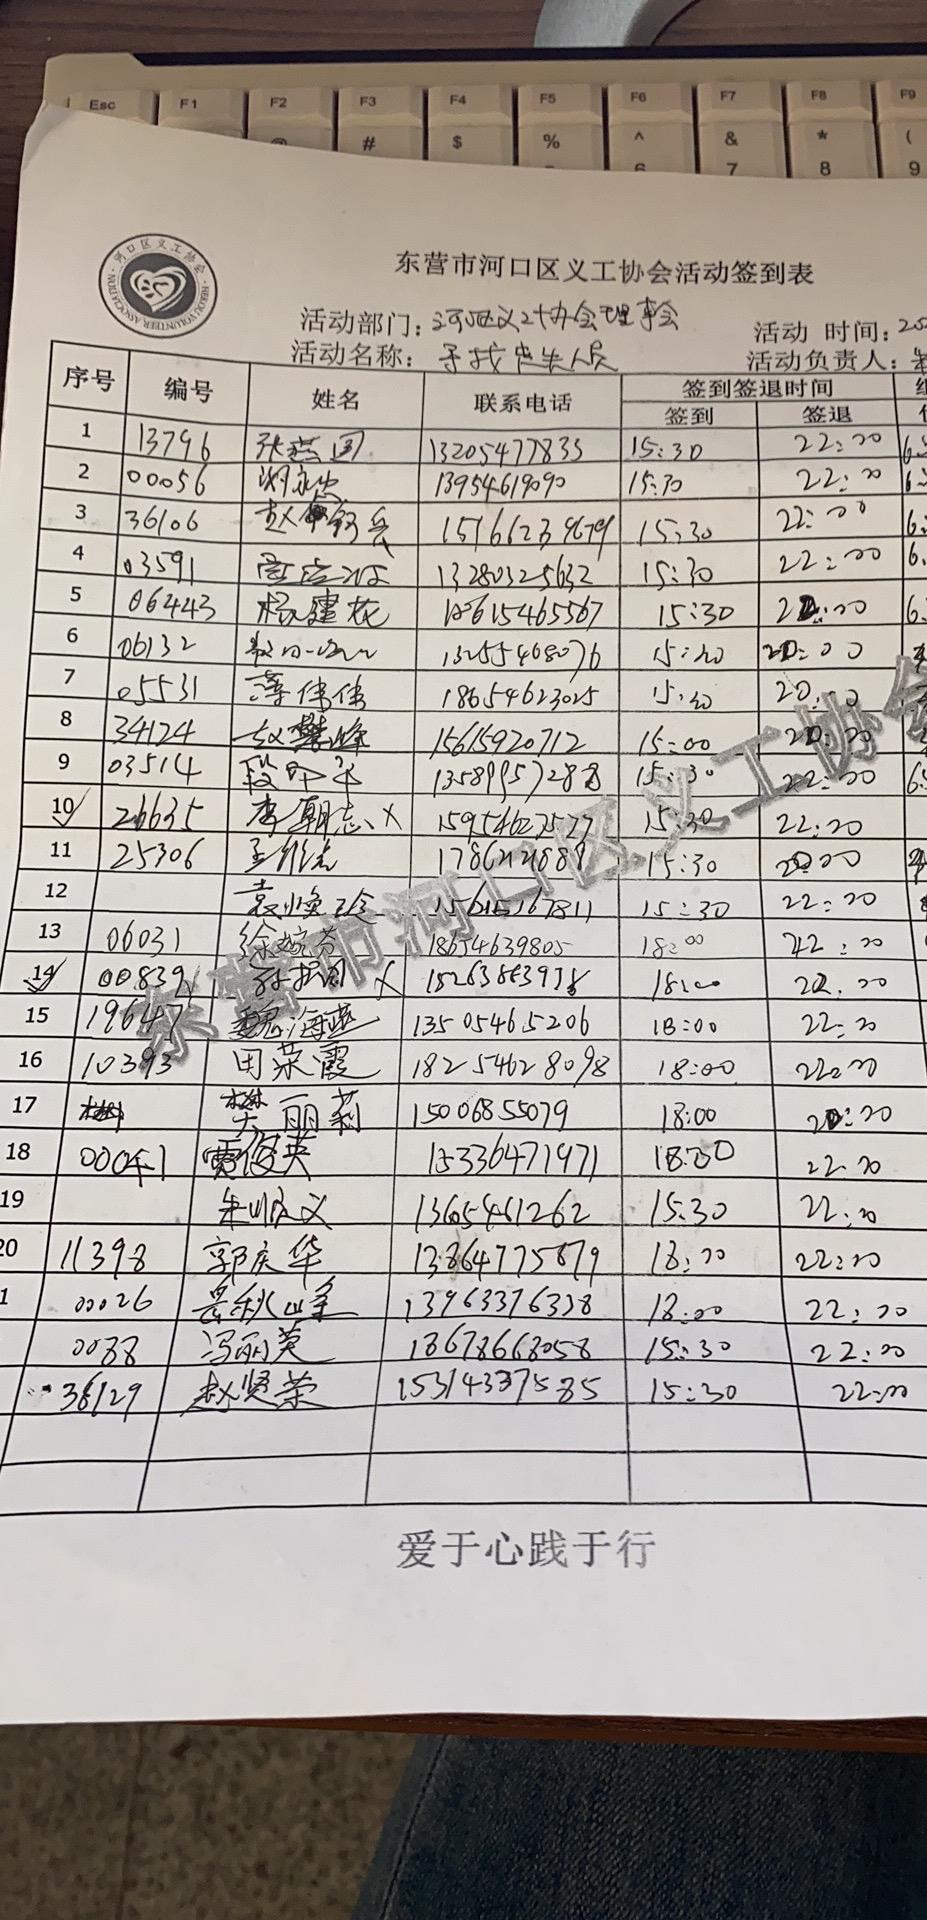 Esc F1 F2 F3 F4 F5 F6 F7 F8 F9
@ # $ % ^ & * (
6 7 8 9
河口区义工协会
HEKOU VOLUNTEER ASSOCIATION
东营市河口区义工协会活动签到表
活动部门：河口区义工协会理事会 活动 时间：
活动名称：寻找走失人员 活动负责人：
序号 编号 姓名 联系电话 签到签退时间
签到 签退
1 13796 张燕 13205477835 15:30 22:00
2 00056 13954619090 15:30 22:00
3 36106 赵 15166239679 15:30 22:00
4 03591 13280325632 15:30 22:00
5 06443 杨建花 15:30
6 06132 13255468076
7 05531 薄伟伟 18654623025
8 34124 赵 峰 15615920712 15:00
9 03514 段 15:30 22:00
10 26635 李朝志 x 15954627577 15:30 22:20
11 25306 王 15:30
12 袁焕珍 15615167811 15:30 22:20
13 06031 徐 芬 18654639805 18:00 22:00
14 00839 x 18:00
15 19647 魏海燕 13505465206 18:00 22:20
16 10393 田荣霞 18254628098 18:00
17 樊丽莉 15006855079 18:00
18 00041 贾俊英 15336471971 18:00 22:20
19 朱顺义 13605461262 15:30 22:20
20 11398 郭庆华 13864775679 22:20
1 00026 岳秋峰 13963376338 18:00 22:20
0088 冯丽英 18678668058 15:30 22:00
36129 赵贤荣 15:30 22:00
东营市河口区义工协会
爱于心践于行